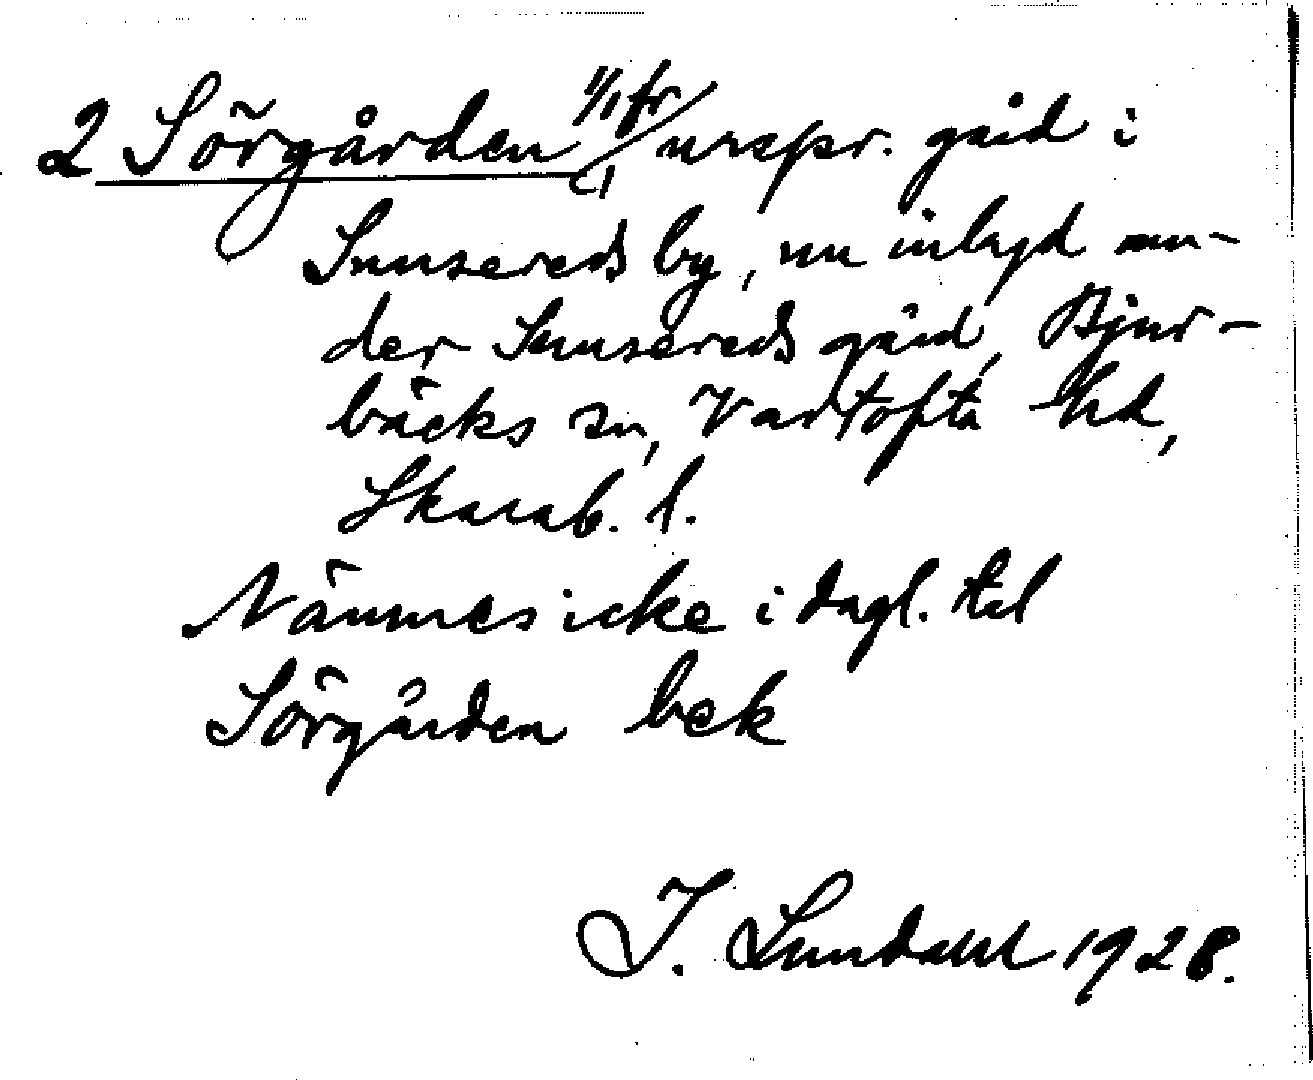 2 Sörgården 1/1 fr urspr. gård i
Sunnereds by, nu inlagd un-
der Sunnereds gård, Bjur-
bäcks sn, Vartofta hd,
Skarab. l.
Nämnes icke i dagl. tal
Sörgården bek
I. Lundahl 1928.